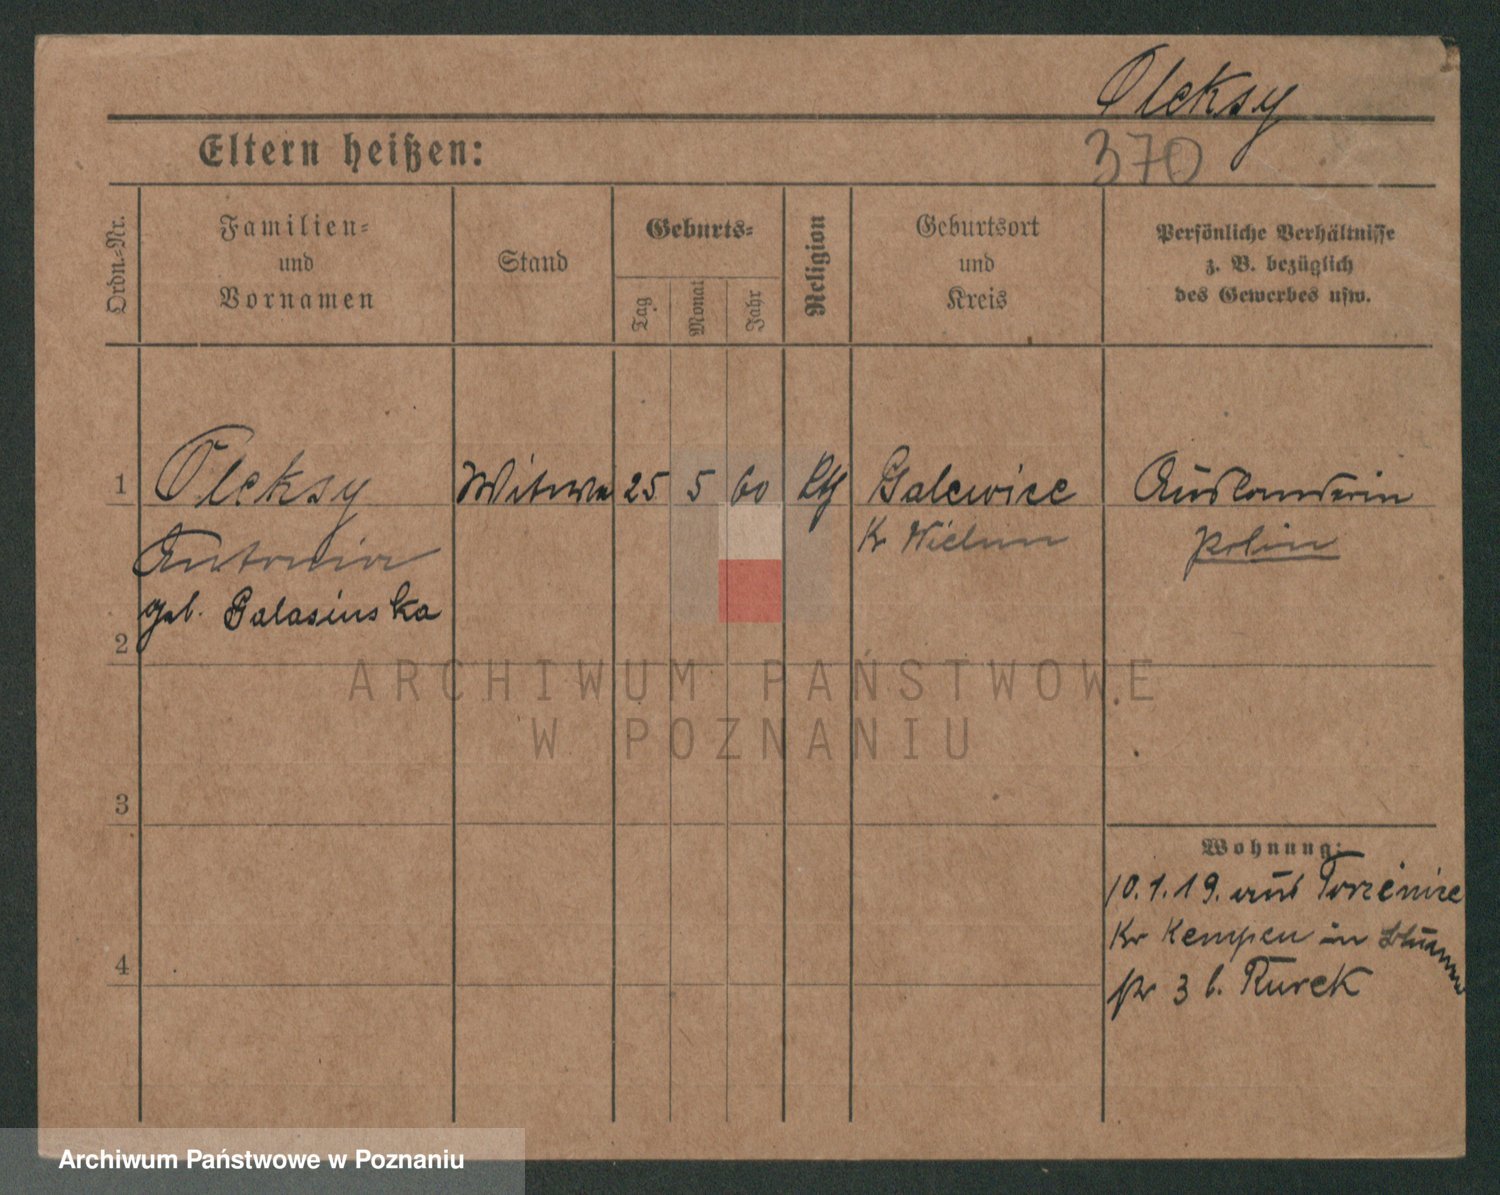 Oleksy
Eltern heißen:
370
Ordn.-Nr.
Familien-
und
Vornamen
Stand
Geburts-
Tag
Monat
Jahr
Religion
Geburtsort
und
Kreis
Persönliche Verhältnisse
z. B. bezüglich
des Gewerbes usw.
1
Oleksy
Witwe
25
5
60
Galewice
Ausländerin
Antonia
Kr Wielun
Polin
geb. Galasinska
2
ARCHIWUM PAŃSTWOWE
W POZNANIU
3
Wohnung:
10.1.19. aus
Kr Kempen in
4
str 3 b. Turek
Archiwum Państwowe w Poznaniu